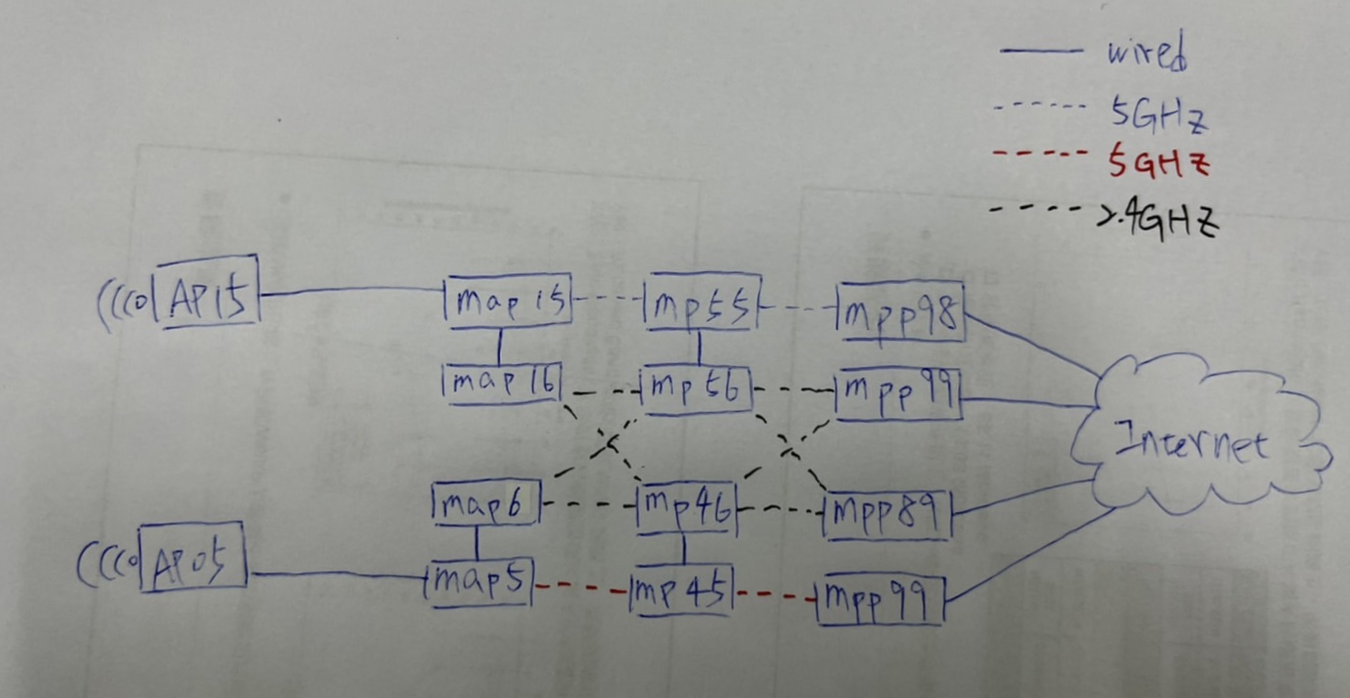 wired
5GHz
5GHz
2.4GHz
AP15
map15
mp55
mpp98
map16
mp56
mpp99
Internet
map6
mp46
mpp89
AP05
map5
mp45
mpp99